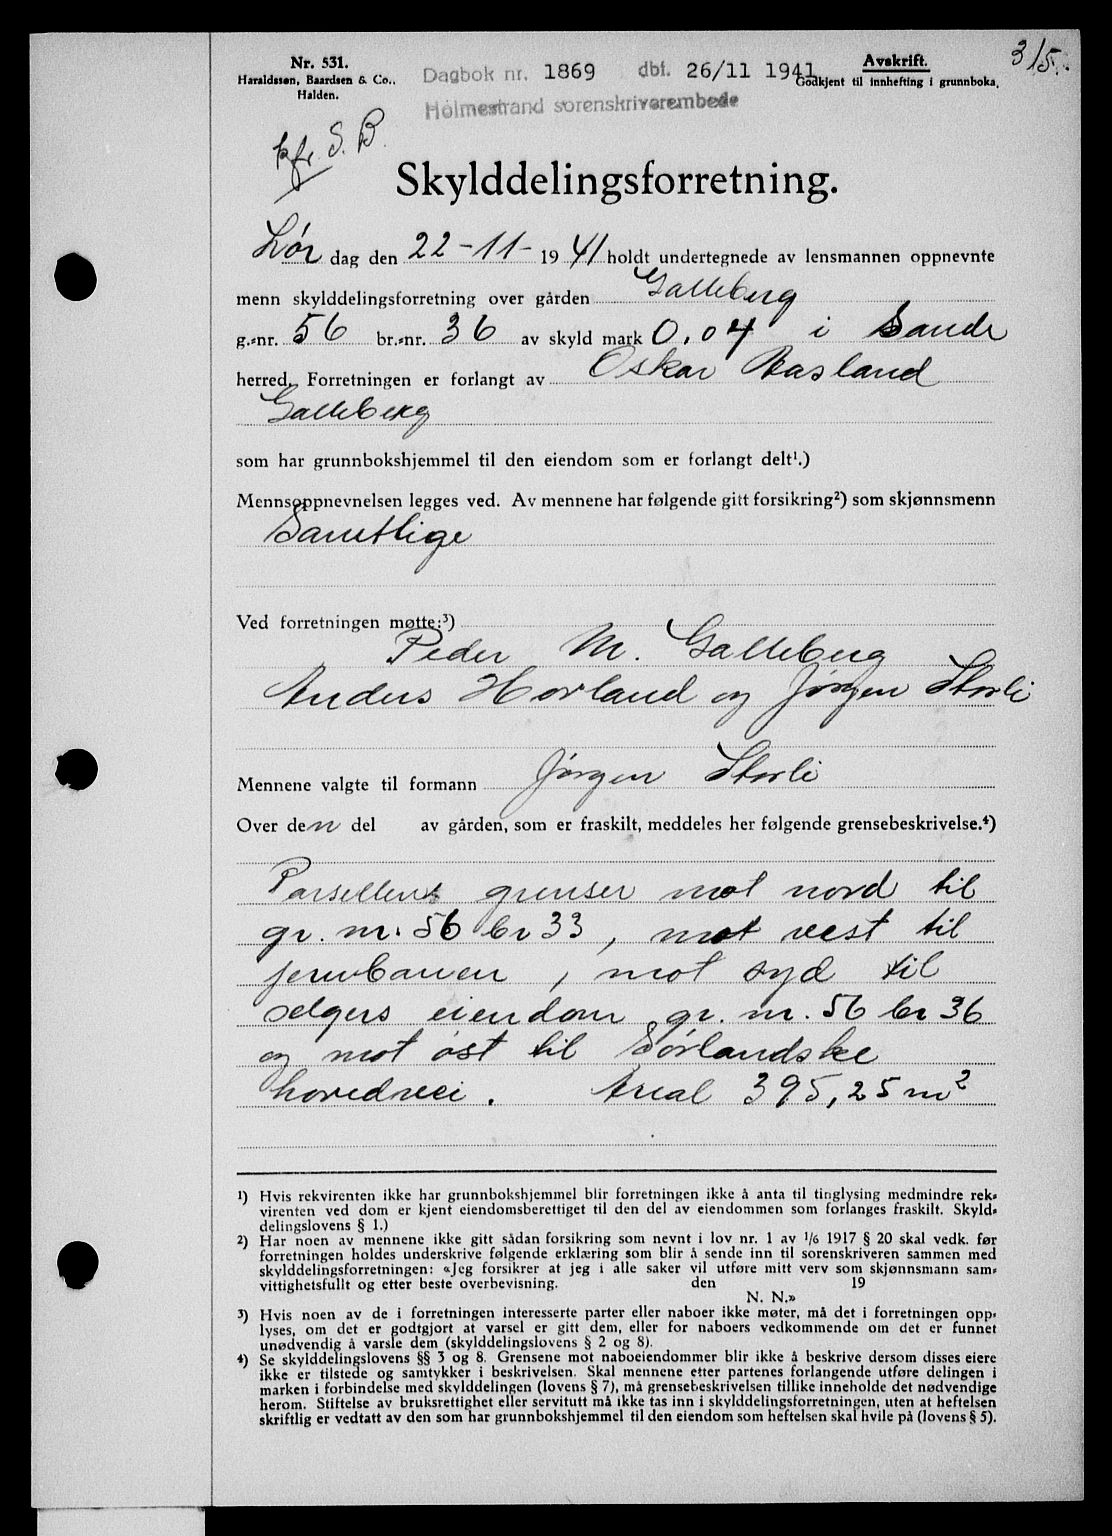 Nr. 531.
Haraldssøn, Baardsen & Co..
Halden.
Dagbok nr. 1869 dbf. 26/11 1941
Holmestrand sorenskriverembede
Avskrift.
Godkjent til innhefting i grunnboka.
315.
kfr. S. B.
Skylddelingsforretning.
Lør dag den 22-11- 1941 holdt undertegnede av lensmannen oppnevnte
menn skylddelingsforretning over gården Galleberg
g.=nr. 56 br.=nr. 36 av skyld mark 0.04 i Sande
herred. Forretningen er forlangt av Oskar Aasland
Galleberg
som har grunnbokshjemmel til den eiendom som er forlangt delt¹.)
Mennsoppnevnelsen legges ved. Av mennene har følgende gitt forsikring²) som skjønnsmenn
Samtlige
Ved forretningen møtte:³)
Peder M. Galleberg
Anders Hovland og Jørgen Storli
Mennene valgte til formann Jørgen Storli
Over den del av gården, som er fraskilt, meddeles her følgende grensebeskrivelse.⁴)
Parsellens grenser mot nord til
gr. nr. 56 br 33, mot vest til
jernbanen, mot syd til
selgers eiendom gr. nr. 56 br 36
og mot øst til Sørlandske
hovedvei. Areal 395,25 m²
¹) Hvis rekvirenten ikke har grunnbokshjemmel blir forretningen ikke å anta til tinglysing medmindre rek=
virenten ved dom er kjent eiendomsberettiget til den del av eiendommen som forlanges fraskilt. Skyld=
delingslovens § 1.)
²) Har noen av mennene ikke gitt sådan forsikring som nevnt i lov nr. 1 av ¹/₆ 1917 § 20 skal vedk. før
forretningen holdes underskrive følgende erklæring som blir å sende inn til sorenskriveren sammen med
skylddelingsforretningen: «Jeg forsikrer at jeg i alle saker vil utføre mitt verv som skjønnsmann sam=
vittighetsfullt og etter beste overbevisning. den 19
N. N.»
³) Hvis noen av de i forretningen interesserte parter eller naboer ikke møter, må det i forretningen opp=
lyses, om det er godtgjort at varsel er gitt dem, eller for naboers vedkommende om det er funnet
unødvendig å varsle dem (skylddelingslovens § 2 og 8).
⁴) Se skylddelingslovens §§ 3 og 8. Grensene mot naboeiendommer blir ikke å beskrive dersom disses eiere
ikke er tilstede og samtykker i beskrivelsen. Skal mennene etter partenes forlangende utføre delingen i
marken i forbindelse med skylddelingen (lovens § 7), må grensebeskrivelsen tillike inneholde det nødvendige
herom. Stiftelse av bruksrettighet eller servitutt må ikke tas inn i skylddelingsforretningen, uten at heftelsen
skriftlig er vedtatt av den som har grunnbokshjemmel til den eiendom som heftelsen skal hvile på (lovens § 5).